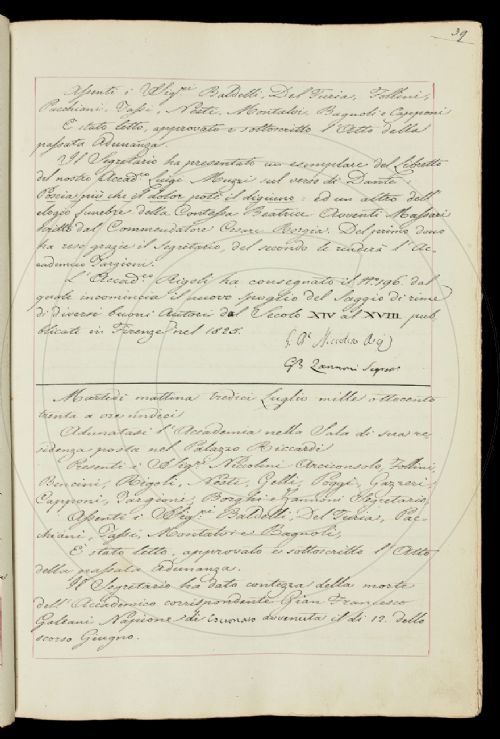 39
Assenti i Sigri Baldelli, Del Furia, Follini,
Pucchiani, Tassi, Nesti, Montalvi Bagnoli e Capponi
È stato letto, approvato e sottoscritto l'Atto della
passata Adunanza.
Il Segretario ha presentato un esemplare del Libretto
del nostro Accadco Luigi Muzzi sul verso di Dante
Poscia più che il dolor potè il digiuno: ed un altro dell'
elogio funebre della Contessa Beatrice Avventi Massari
scritto dal Commendatore Cesare Borgia. Del primo dono
ha rese grazie il Segretario, del secondo le renderà l'Ac-
cademico Targioni.
L'Accadco Rigoli ha consegnato il N. 196. dal
quale incomincia il nuovo spoglio del Saggio di rime
di diversi buoni Autori dal Secolo XIV al XVIII. pub
blicato in Firenze nel 1825.
G. Ba Niccolini
GB Zannoni Segro
Martedì mattina tredici Luglio mille ottocento
trenta a ore undeci
Adunatasi l'Accademia nella Sala di sua re-
sidenza posta nel Palazzo Riccardi
Presenti i Sigri Niccolini Arciconsolo, Follini,
Bencini, Rigoli, Nesti, Gelli, Poggi, Gazzeri,
Capponi, Targioni, Borghi e Zannoni Segretario,
Assenti i Sigri Baldelli, Del Furia, Puc-
chiani, Tassi, Montalvi e Bagnoli,
È stato letto, approvato e sottoscritto l'Atto
della passata Adunanza.
Il Segretario ha dato contezza della morte
dell'Accademico corrispondente Gian Francesco
Galeani Napione di Cocconato avvenuta il dì 12. dello
scorso Giugno.